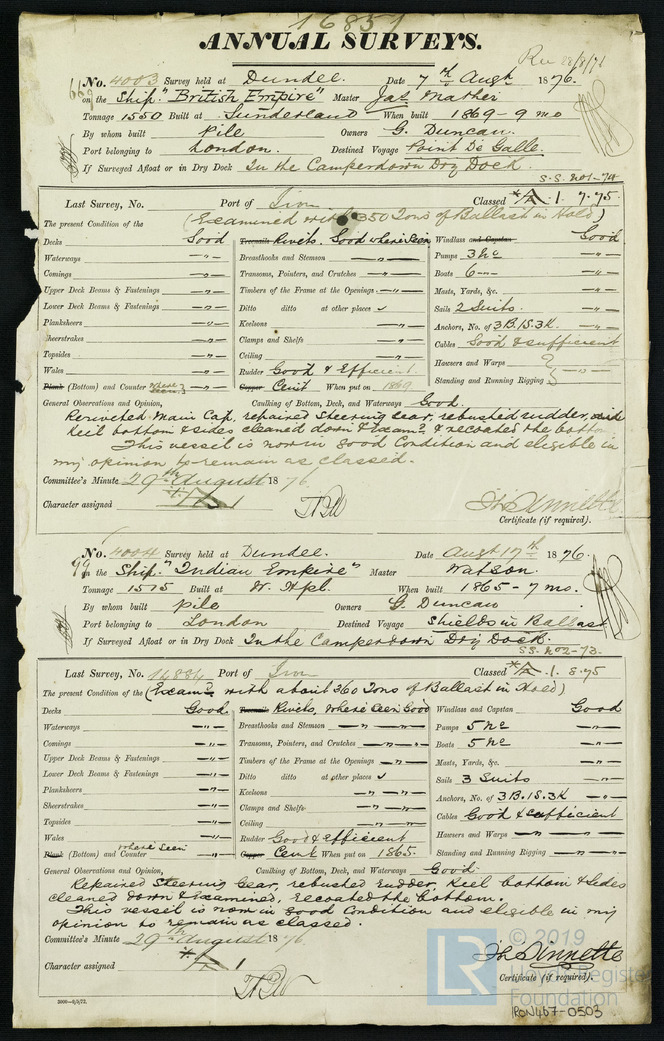 16851
ANNUAL SURVEYS.
No. 4003 Survey held at Dundee. Date 7th Augt 1876.
on the Ship "British Empire" Master Jas Mather
Tonnage 1550 Built at Sunderland When built 1869 - 9 mo
By whom built Pile Owners G. Duncan.
Port belonging to London. Destined Voyage Point De Galle.
If Surveyed Afloat or in Dry Dock In the Camperdown Dry Dock.
S.S. No1-74
Last Survey, No. Port of Iron Classed A. 1. 7.75.
(Examined with 350 Tons of Ballast in Hold)
The present Condition of the
Decks Good Treenails Rivets. Good where seen Windlass and Capstan Good
Waterways -"- Breasthooks and Stemson -"- Pumps 3 No
Comings -"- Transoms, Pointers, and Crutches -"- Boats 6 -"-
Upper Deck Beams & Fastenings -"- Timbers of the Frame at the Openings -"- Masts, Yards, &c. -"-
Lower Deck Beams & Fastenings -"- Ditto ditto at other places ✓ Sails 2 Suits. -"-
Planksheers -"- Keelsons -"- Anchors, No. of 3B.1S.3K. -"-
Sheerstrakes -"- Clamps and Shelfs -"- Cables Good & sufficient
Topsides -"- Ceiling -"- Hawsers and Warps
Wales -"- Rudder Good & Efficient. Standing and Running Rigging -"-
Plank (Bottom) and Counter where seen -"- Copper Cemt When put on 1869
General Observations and Opinion, Caulking of Bottom, Deck, and Waterways Good.
Reriveted Main Cap, repaired Steering Gear, rebushed rudder,
Keel bottom & sides cleaned down & Examd & recoated the bottom
This vessel is now in good Condition and eligible in
my opinion to remain as classed.
Committee's Minute 29th August 1876.
Character assigned
Certificate (if required).
No. 4004 Survey held at Dundee. Date Augt 17th 1876.
on the Ship "Indian Empire" Master Watson.
Tonnage 1575 Built at W. Hpl. When built 1865 - 7 mo.
By whom built Pile Owners G. Duncan
Port belonging to London Destined Voyage Shields in Ballast
If Surveyed Afloat or in Dry Dock In the Camperdown Dry Dock.
S.S. No2-73.
Last Survey, No. 16884 Port of Iron Classed A. 1. 8.75
The present Condition of the (Examd with about 360 Tons of Ballast in Hold)
Decks Good. Treenails Rivets, Where seen Good Windlass and Capstan Good
Waterways -"- Breasthooks and Stemson -"- Pumps 5 No
Comings -"- Transoms, Pointers, and Crutches -"- Boats 5 No
Upper Deck Beams & Fastenings -"- Timbers of the Frame at the Openings -"- Masts, Yards, &c. -"-
Lower Deck Beams & Fastenings -"- Ditto ditto at other places ✓ Sails 3 Suits -"-
Planksheers -"- Keelsons -"- Anchors, No. of 3B.1S.3K -"-
Sheerstrakes -"- Clamps and Shelfs -"- Cables Good & sufficient
Topsides -"- Ceiling -"- Hawsers and Warps -"-
Wales -"- Rudder Good & Efficient Standing and Running Rigging -"-
Plank (Bottom) and Counter where seen -"- Copper Cemt When put on 1865.
General Observations and Opinion, Caulking of Bottom, Deck, and Waterways Good.
Repaired Steering Gear, rebushed Rudder, Keel bottom & sides
cleaned down & Examined, recoated the bottom.
This vessel is now in good Condition and eligible in my
opinion to remain as classed.
Committee's Minute 29th August 1876.
Character assigned
Certificate (if required).
3000—9/5/72.
LR © 2019
Lloyd's Register
Foundation
IRON467-0503